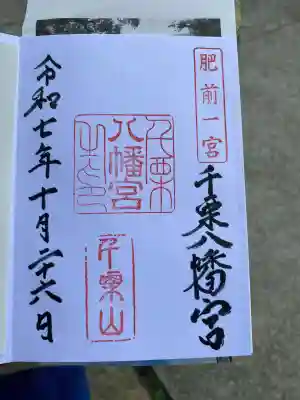 肥前一宮
千栗八幡宮
千栗
八幡宮
千栗山
令和七年十月二十六日